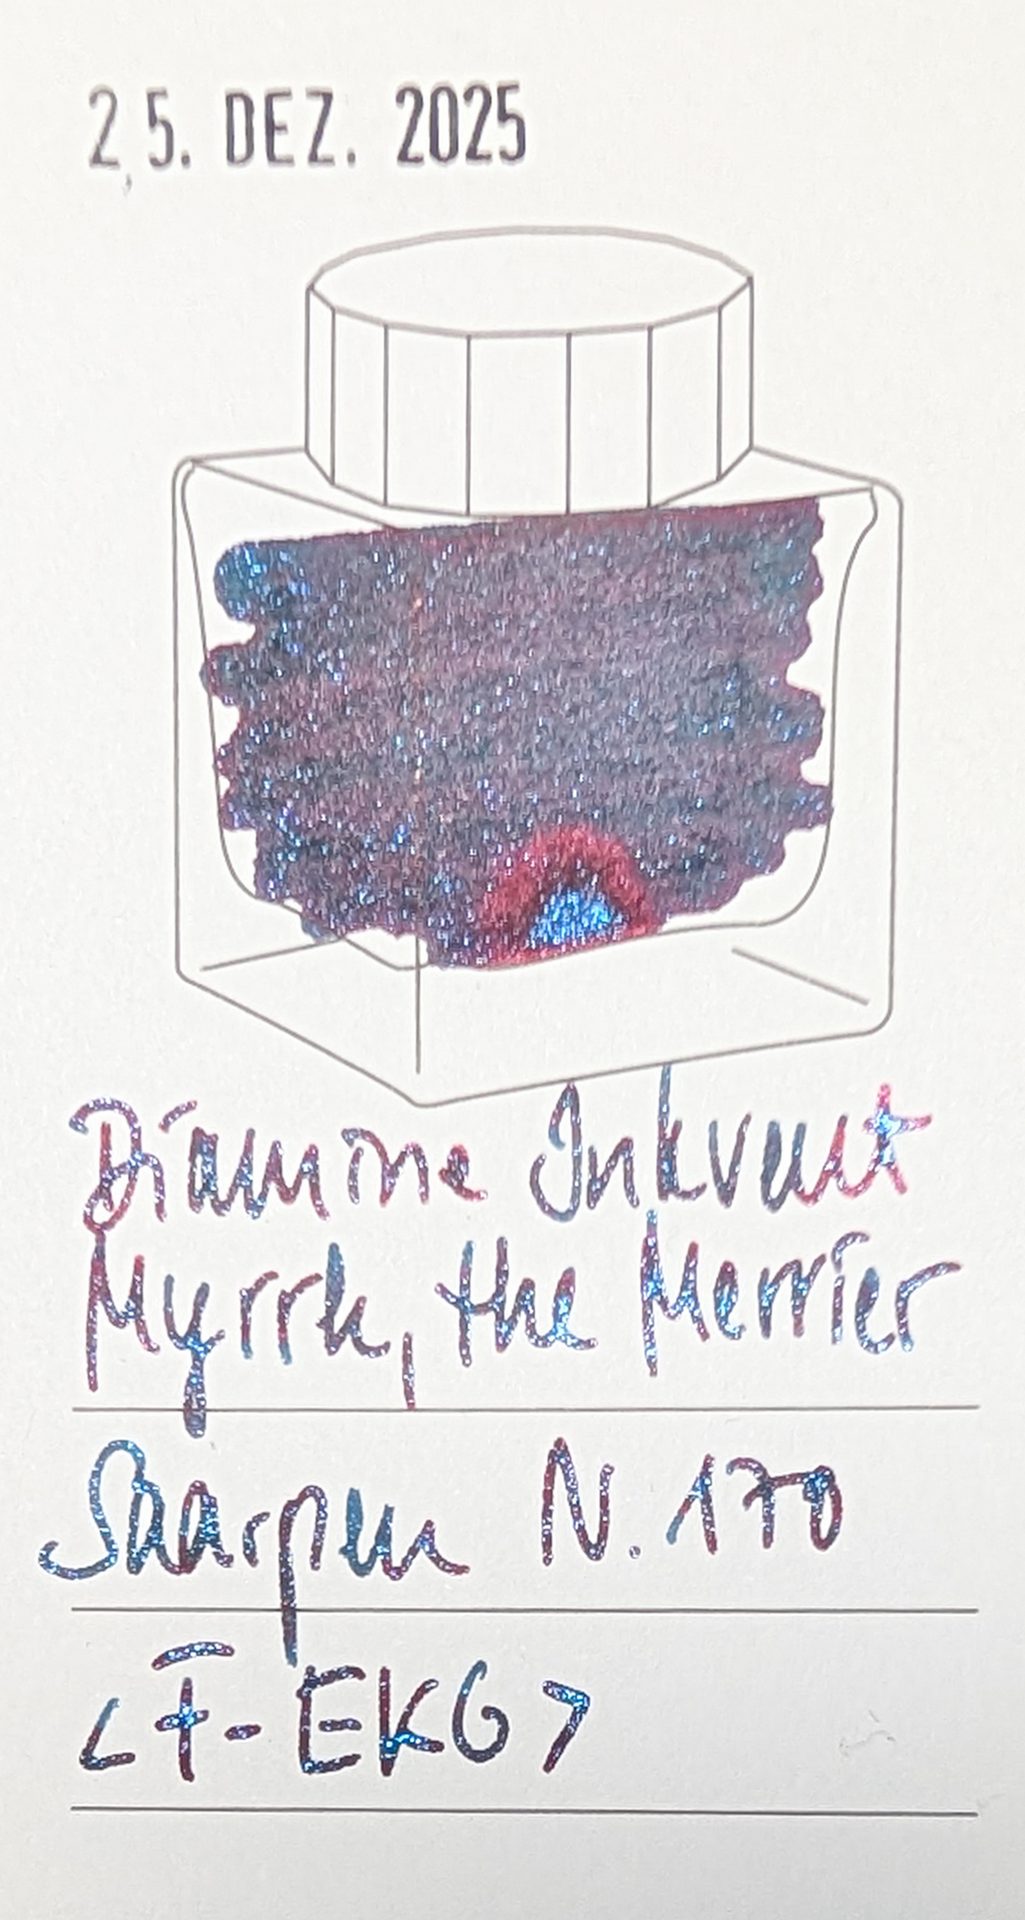 25. DEZ. 2025
Diamine Inkvent
Myrrh, the Merrier
Skarpen N. 170
<F-EKG>